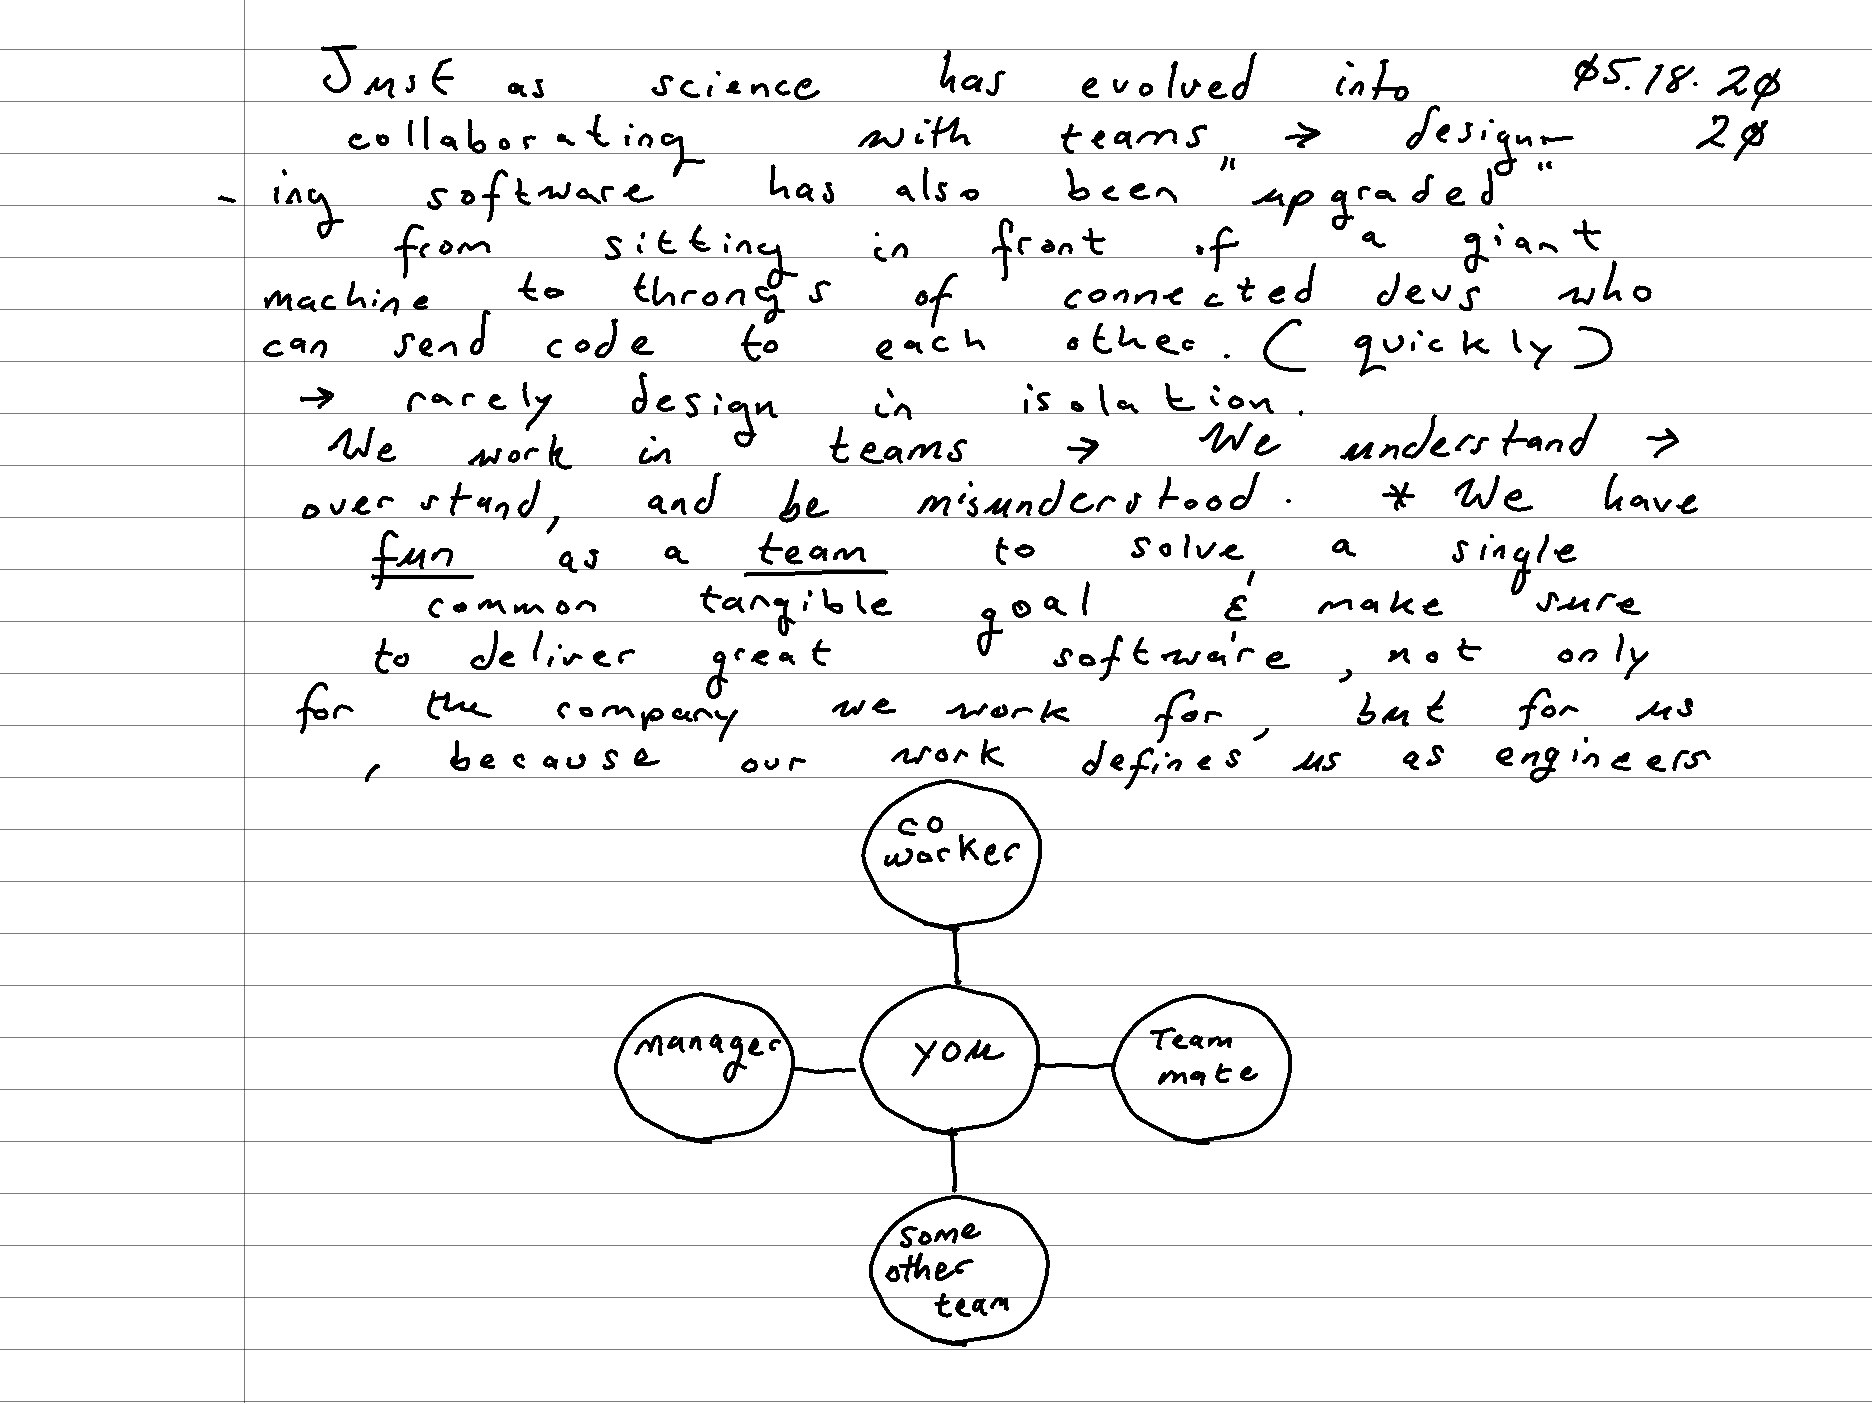 Just as science has evolved into ø5.18.2ø
collaborating with teams → design- 2ø
-ing software has also been "upgraded"
from sitting in front of a giant
machine to throngs of connected devs who
can send code to each other. (quickly)
→ rarely design in isolation.
We work in teams → We understand →
overstand, and be misunderstood. * We have
fun as a team to solve a single
common tangible goal & make sure
to deliver great software, not only
for the company we work for, but for us
, because our work defines us as engineers
co
worker
manager
you
Team
mate
some
other
team